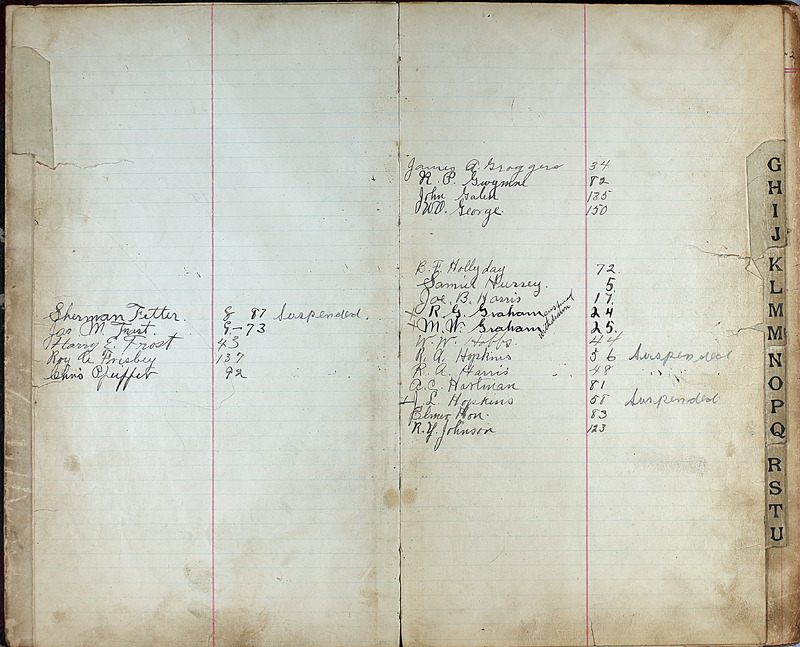 Sherman Fetter. 8 87 Suspended.
Jas M. Frist. G-73
Harry E. Frost 43
Roy A Frisbey 137
Chris Pfuffer 92
James A. Groggers 34
R. P. Gwynne 82
John Galen 135
W. George. 150
B. F. Hollyday 72.
Samul Hursey. 5.
Joe. B. Harris 17.
R. G. Graham 24
M. W. Graham 25.
W. W. Hobbs. 44
R. A. Hopkins 56 Suspended
R. A. Harris 48 " "
A. C. Hartman 81
J. L. Hopkins 58 Suspended
Elmer Hon. 83
R. Y. Johnson 123
G
H
I
J
K
L
M
M
N
O
P
Q
R
S
T
U